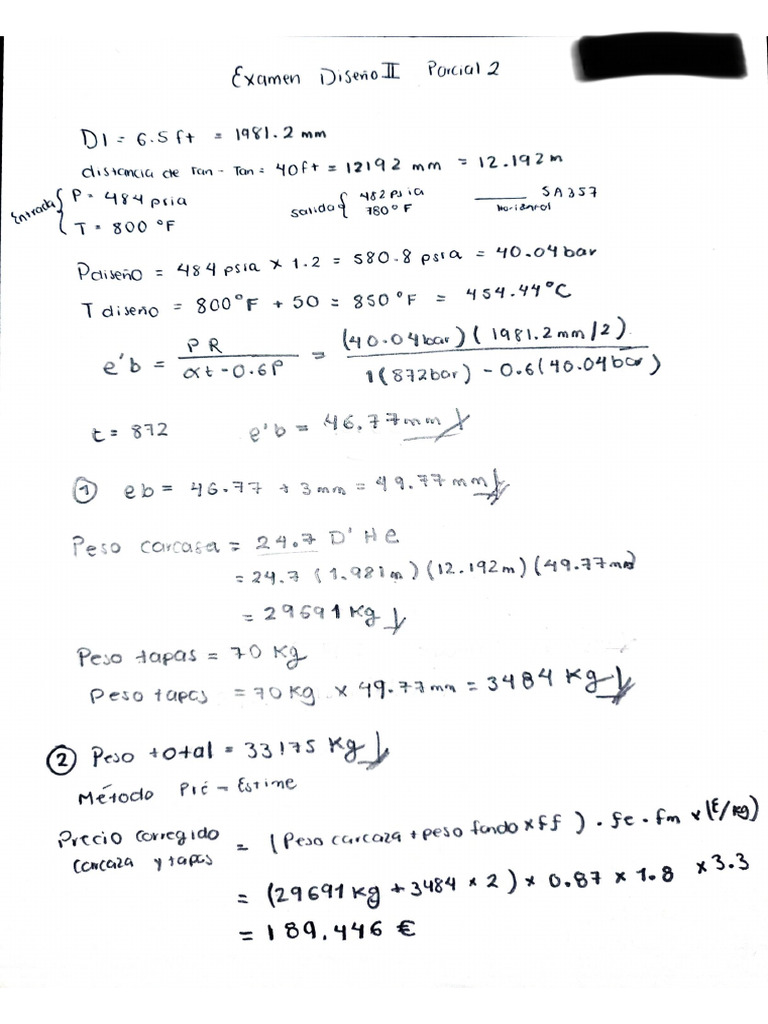 Examen Diseño II Parcial 2
DI = 6.5 ft = 1981.2 mm
distancia de Tan - Tan = 40 ft = 12192 mm = 12.192 m
Entrada { P = 484 psia
T = 800 °F
salida { 482 psia
780 °F
SA357
Horizontal
Pdiseño = 484 psia x 1.2 = 580.8 psia = 40.04 bar
T diseño = 800°F + 50 = 850 °F = 454.44°C
e'b = PR / αt - 0.6P = (40.04 bar)(1981.2 mm/2) / 1(872bar) - 0.6(40.04 bar)
t = 872 e'b = 46.77 mm
① eb = 46.77 + 3 mm = 49.77 mm
Peso carcasa = 24.7 D' H e
= 24.7 (1.981 m)(12.192 m)(49.77 mm)
= 29691 Kg
Peso tapas = 70 Kg
Peso tapas = 70 Kg x 49.77 mm = 3484 Kg
② Peso total = 33175 Kg
Método Pré - Estime
Precio corregido
carcaza y tapas = (Peso carcaza + peso fondo x ff) . fe . fm x (€/Kg)
= (29691 Kg + 3484 x 2) x 0.87 x 1.8 x 3.3
= 189.446 €